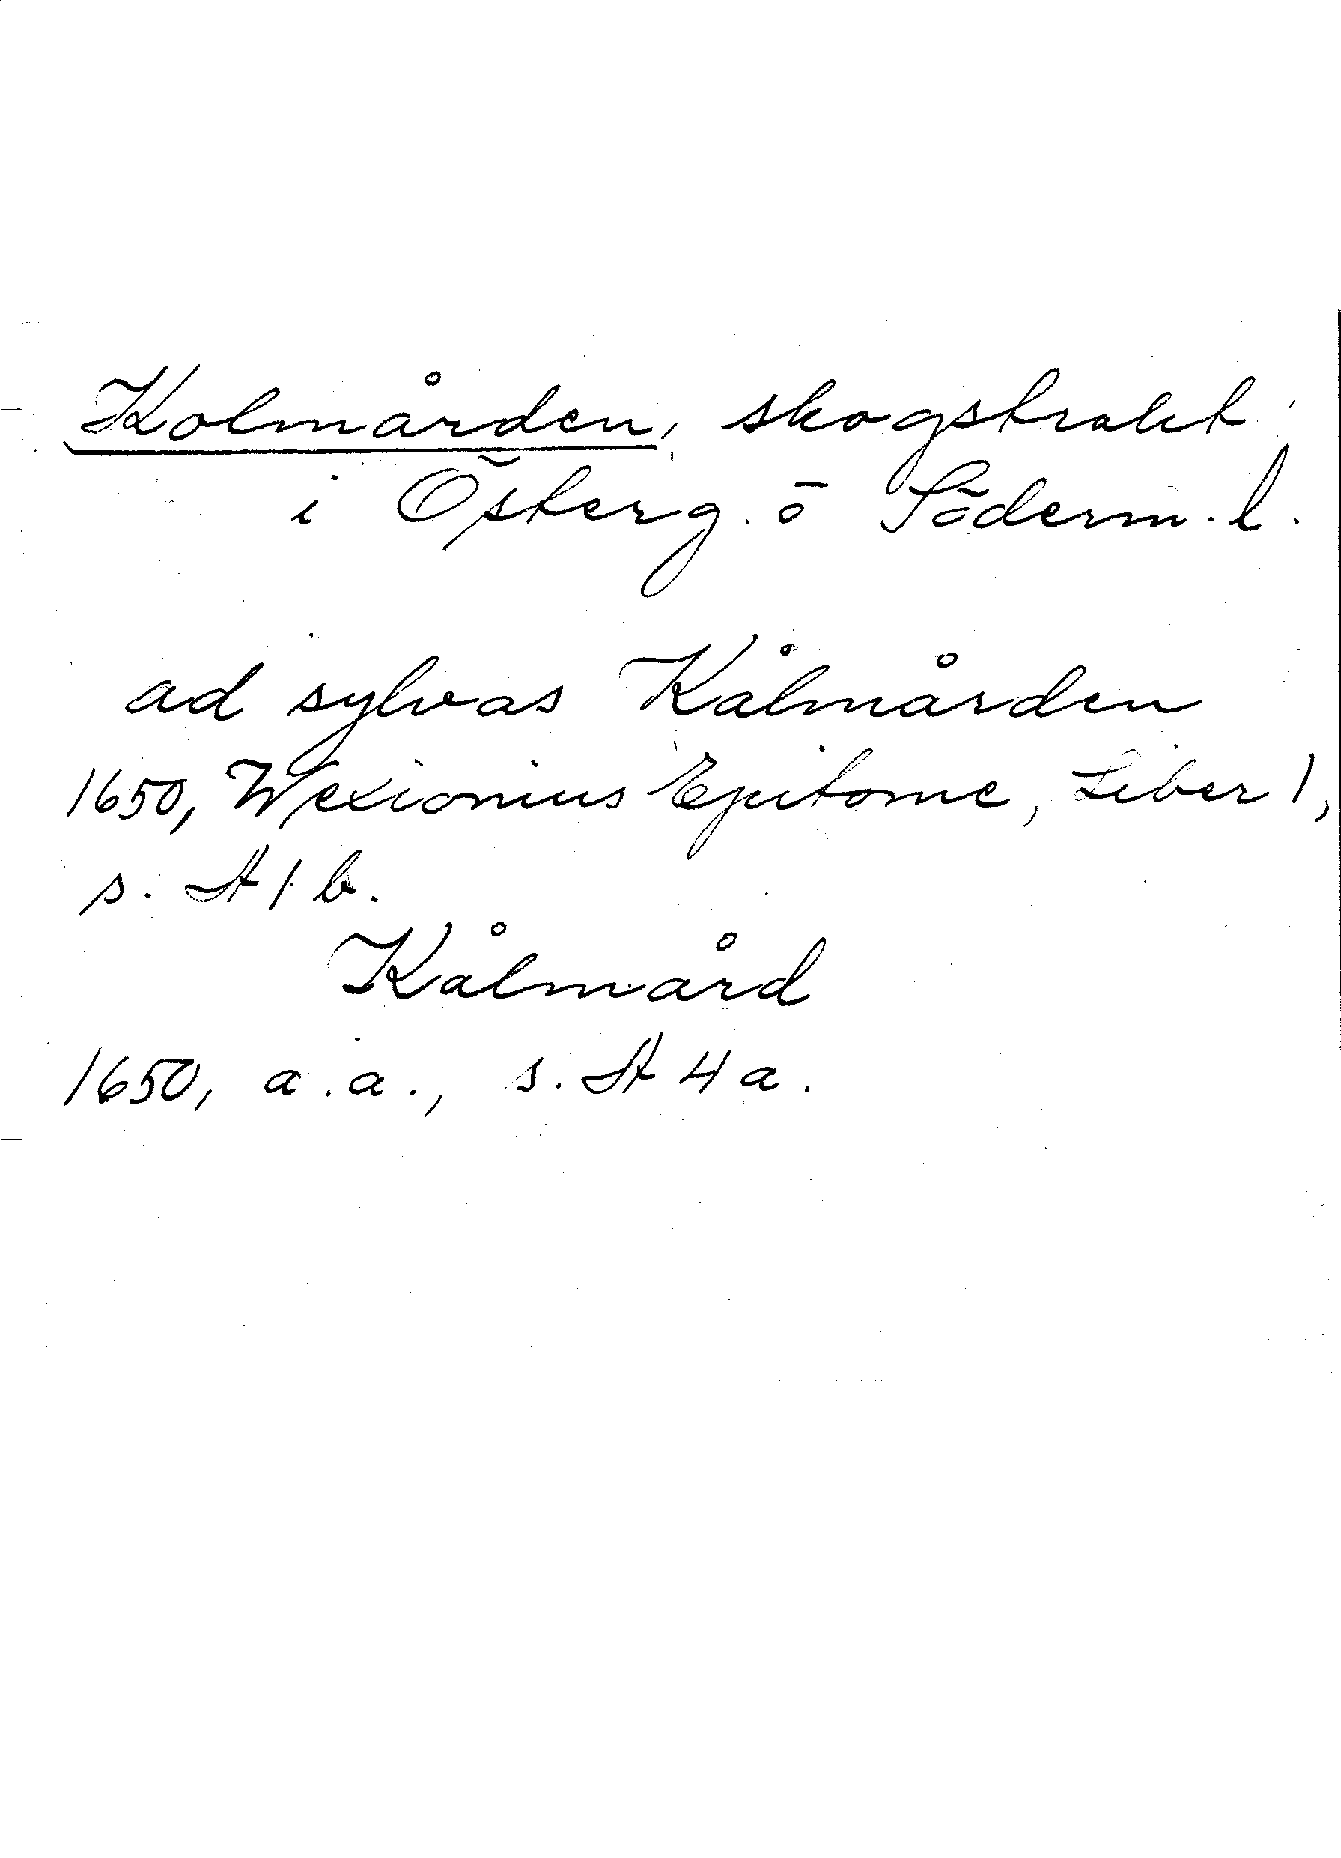 Kolmården, skogstrakt
i Österg. ö Söderm. l.
ad sylvas Kålmården
1650, Wexionius Epitome, Liber 1,
s. A 1 b.
Kålmård
1650, a.a., s. A 4 a.